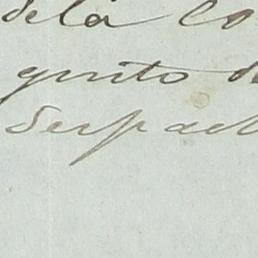 dela Co
quito d
Despach